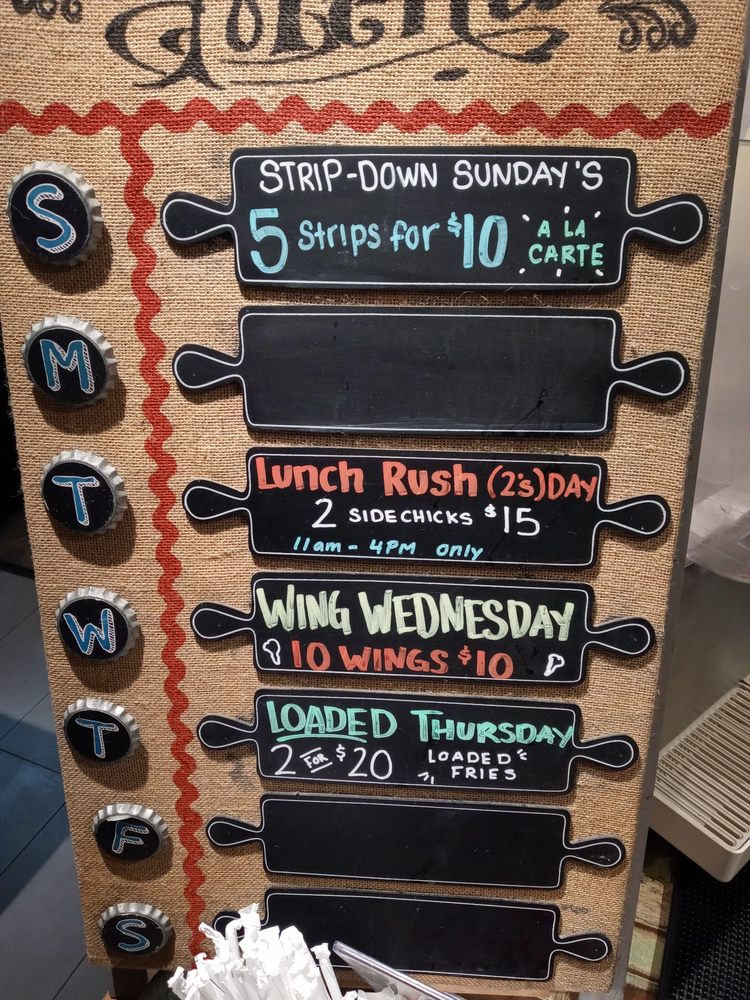 S
STRIP-DOWN SUNDAY'S
5 Strips for $10
A LA
CARTE
M
T
Lunch Rush (2's)DAY
2 SIDECHICKS $15
11am - 4PM only
W
WING WEDNESDAY
10 WINGS $10
T
LOADED THURSDAY
2 FOR $20
LOADED
FRIES
F
S